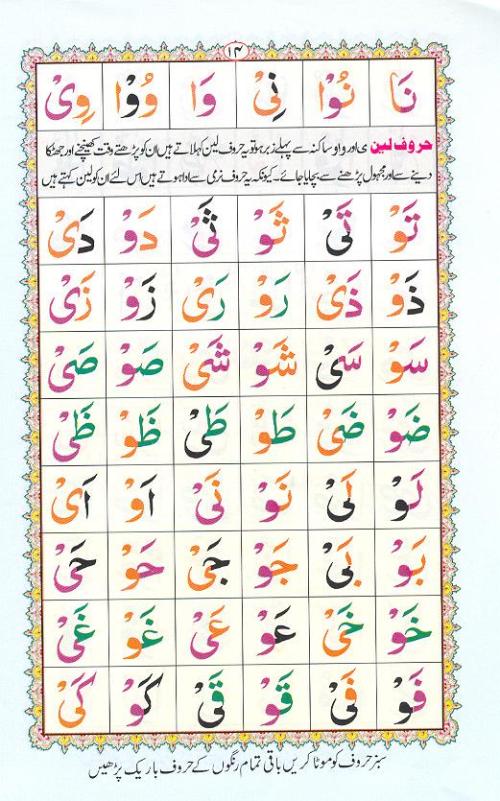 ۱۴
نَا نُوْا نِیْ وَا وُوْا وِیْ
حروف لین ی اور و او ساکنہ سے پہلے زبر ہو تو یہ حروف لین کہلاتے ہیں ان کو پڑھتے وقت کھینچنے اور جھٹکا
دینے سے اور مجہول پڑھنے سے بچایا جائے۔ کیونکہ یہ حروف نرمی سے ادا ہوتے ہیں اس لئے ان کو لین کہتے ہیں
تَوْ تَیْ ثَوْ ثَیْ دَوْ دَیْ
ذَوْ ذَیْ رَوْ رَیْ زَوْ زَیْ
سَوْ سَیْ شَوْ شَیْ صَوْ صَیْ
ضَوْ ضَیْ طَوْ طَیْ ظَوْ ظَیْ
لَوْ لَیْ نَوْ نَیْ اَوْ اَیْ
بَوْ بَیْ جَوْ جَیْ حَوْ حَیْ
خَوْ خَیْ عَوْ عَیْ غَوْ غَیْ
فَوْ فَیْ قَوْ قَیْ کَوْ کَیْ
سبز حروف کو موٹا کریں باقی تمام رنگوں کے حروف باریک پڑھیں